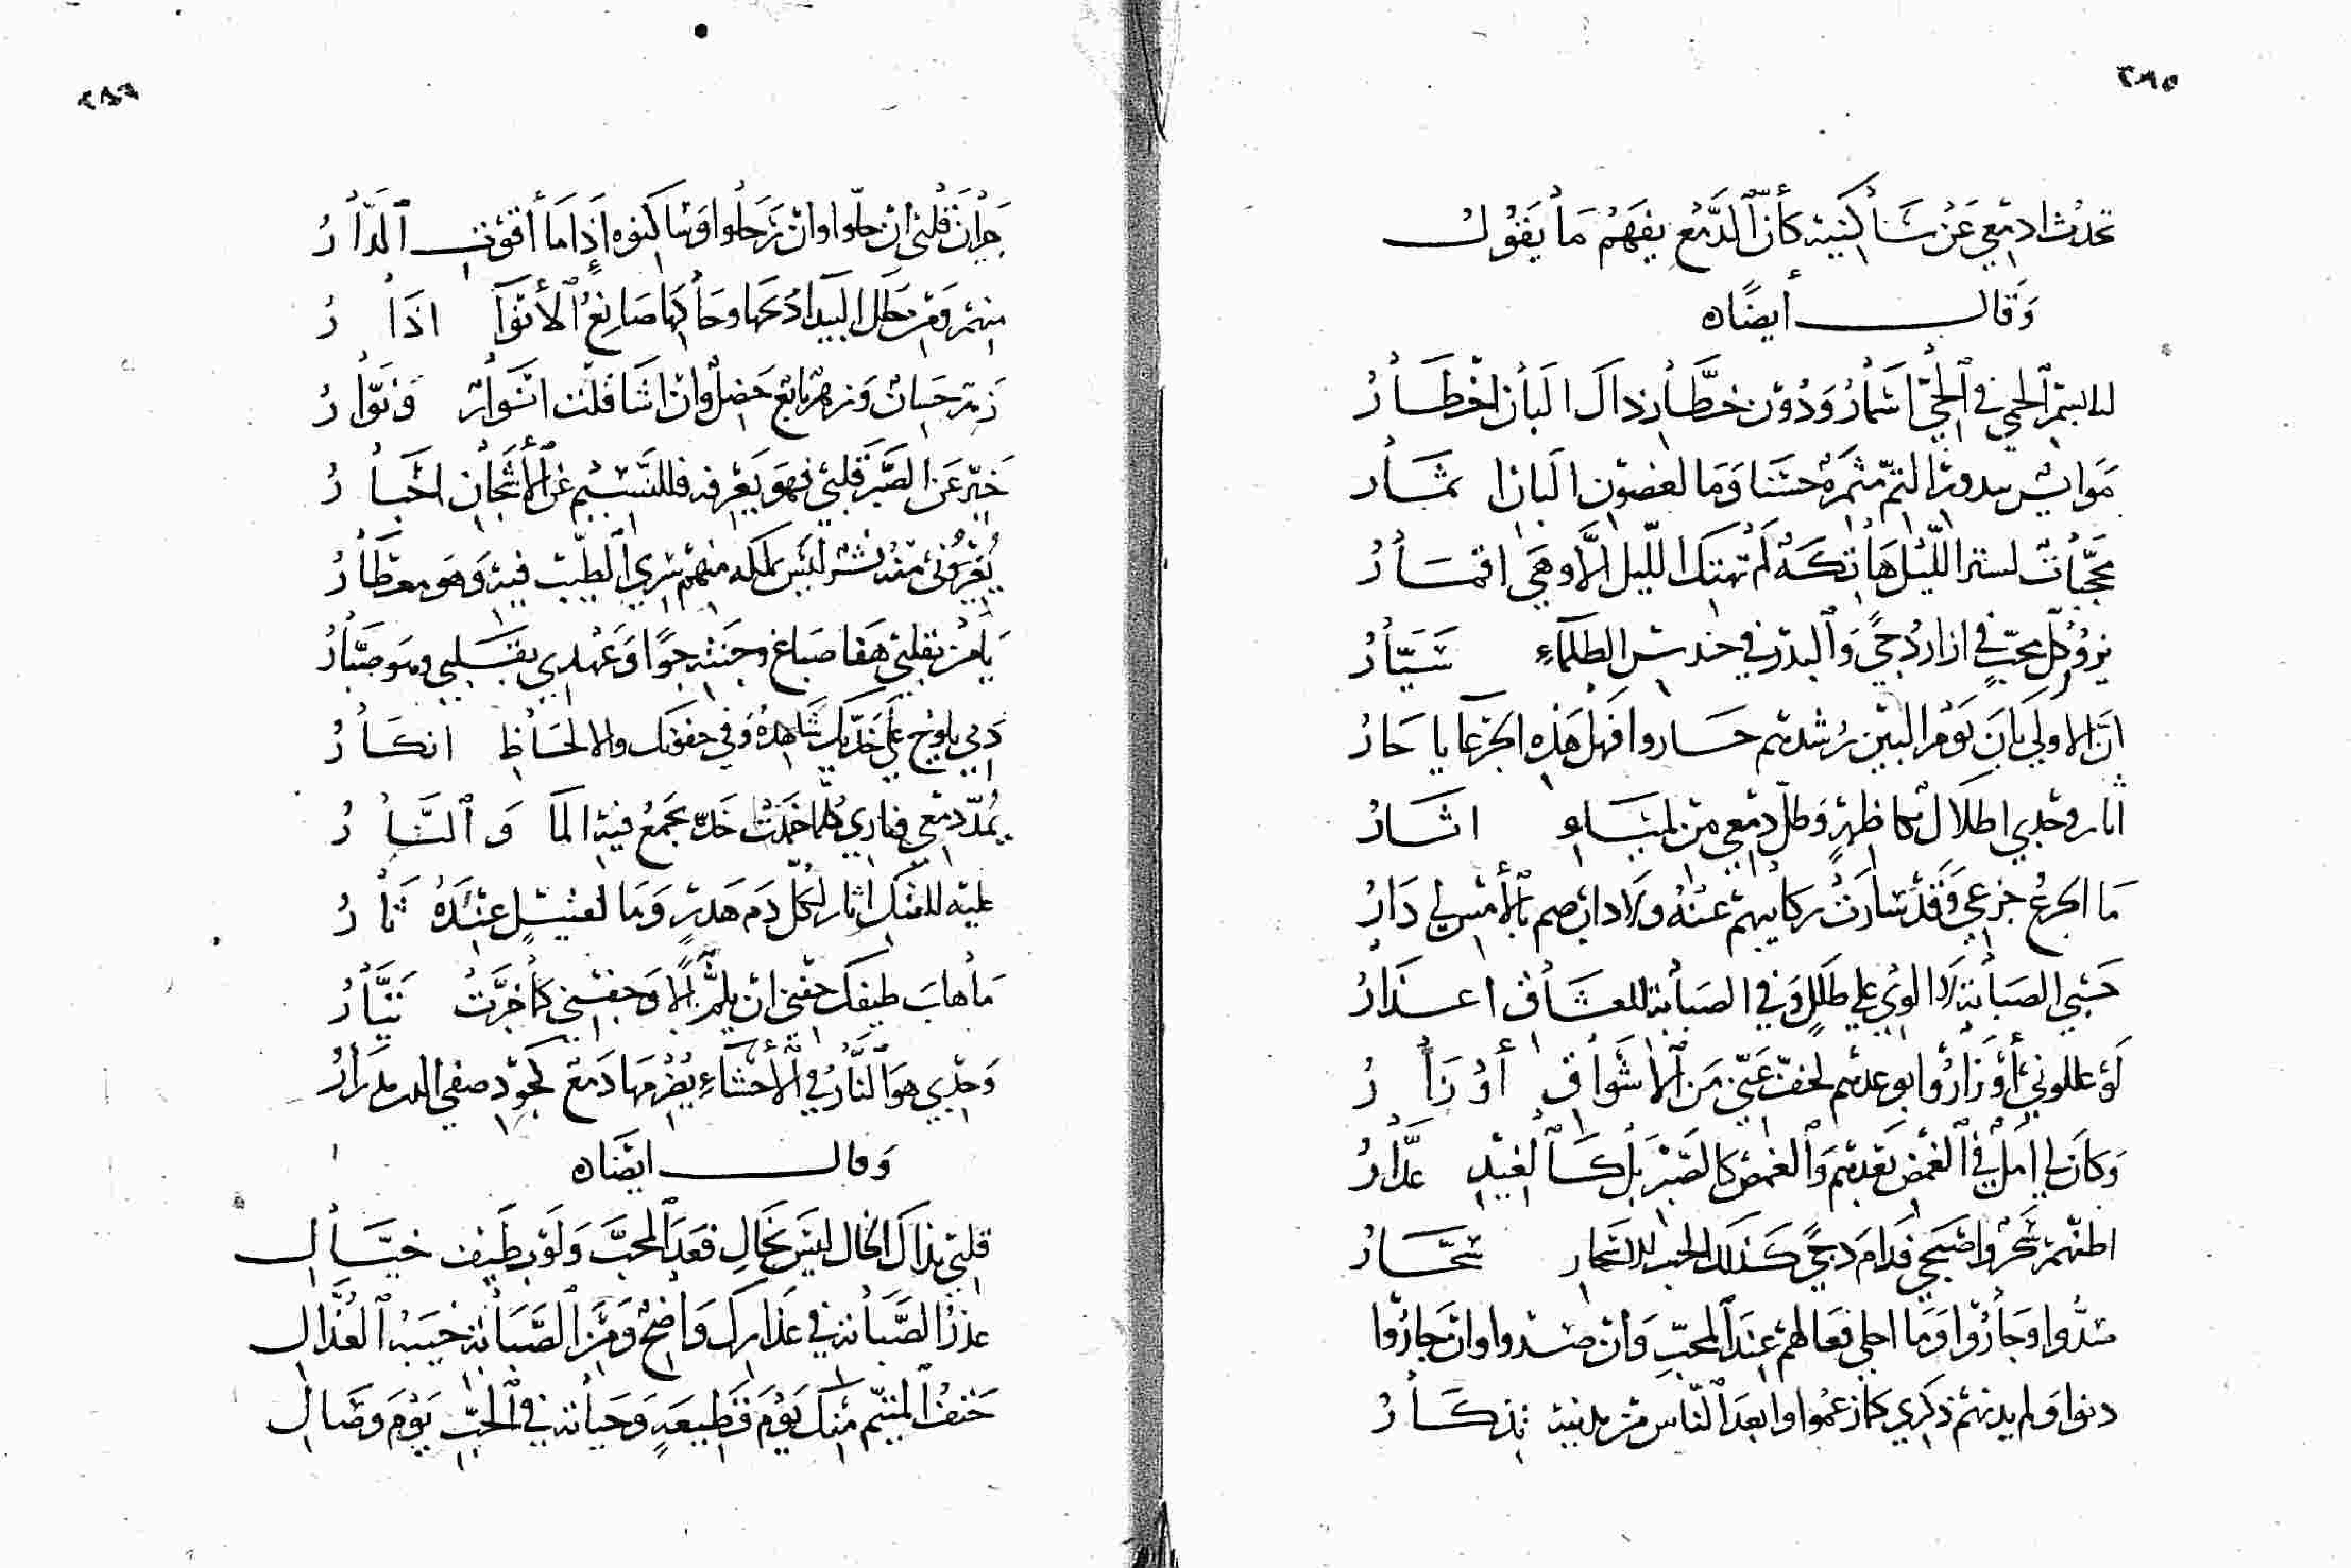 ٢٨٥
تحدث ادمعي عن ساكنيه كأن الدمع يفهم ما يقول
وقال أيضاه
لنا بسمر الحمى في الحي أسمار ودون خطار ذاك البان اخطار
موايس ببدور التم مثمرة حسنا وما لغصون البان اثمار
محجبات لستر الليل هاتكة لم تهتك الليل الا وهي اقمار
يزور كل محب في ازار دجى والبدر في حندس الظلماء سيار
ان الاولى بان يوم البين رشدهم حاروا فهل هذه الجزعا يا حار
اثار وجدي اطلال بكاظمة وطل دمعي من لمياء اثار
ما الجزع جزعي وقد سارت ركايبهم عنه ولا دارهم بالأمس لي دار
حسبي الصبابة لا الوي على طلل وفي الصبابة للعشاق اعذار
لو عللوني أو زاروا بوعدهم لخف عني من الأشواق أوزار
وكان لي امل في الغمض بعدهم والغمض كالصبر بل كالغيد غدار
اظنهم سحروا صبحي فدام دجى كذلك الحب للاسحار سحار
صدوا وجاروا وما احلى فعالهم عند المحب وان صدوا وان جاروا
دنوا ولم يدنهم ذكري كما زعموا وابعد الناس من يدنيه تذكار
٢٨٦
جيران قلبي ان حلوا وان رحلوا وساكنوه إذا ما أقوت الدار
منهم ومن حلل البيدا دبجها وحاكها صانع الأنوا اذا ر
زهر حسان وزهر يانع خضل وان تشا قلت انوار ونوار
خبر عن الصبر قلبي فهو يعرفه فللنسيم عن الأشجان اخبار
يغرني منه نشر ليس يملكه منهم سرى الطيب فيه وهو معطار
يا من بقلبي هفا صباغ وجنته جوا وعهدي بقلبي وهو صبار
دمي يلوح على خديك شاهده وفي جفونك والالحاظ انكار
يمد دمعي فناري كلما خمدت خد تجمع فيه الما والنار
عليه للفتك اثار لكل دم هدر وما لقتيل عنده ثار
ما هاب طيفك جفني ان يلم به الا وجفني كما خبرت تيار
وجدي هو النار في الأحشاء يضرمها دمع لجود صفي الدين مدرار
وقال ايضاه
قلبي بذاك الخال ليس بخال فعد المحب ولو بطيف خيال
عذر الصبابة في عذارك واضح ومن الصبابة خيبة العذال
حتف المتيم منك يوم قطيعة وحياته في الحب يوم وصال